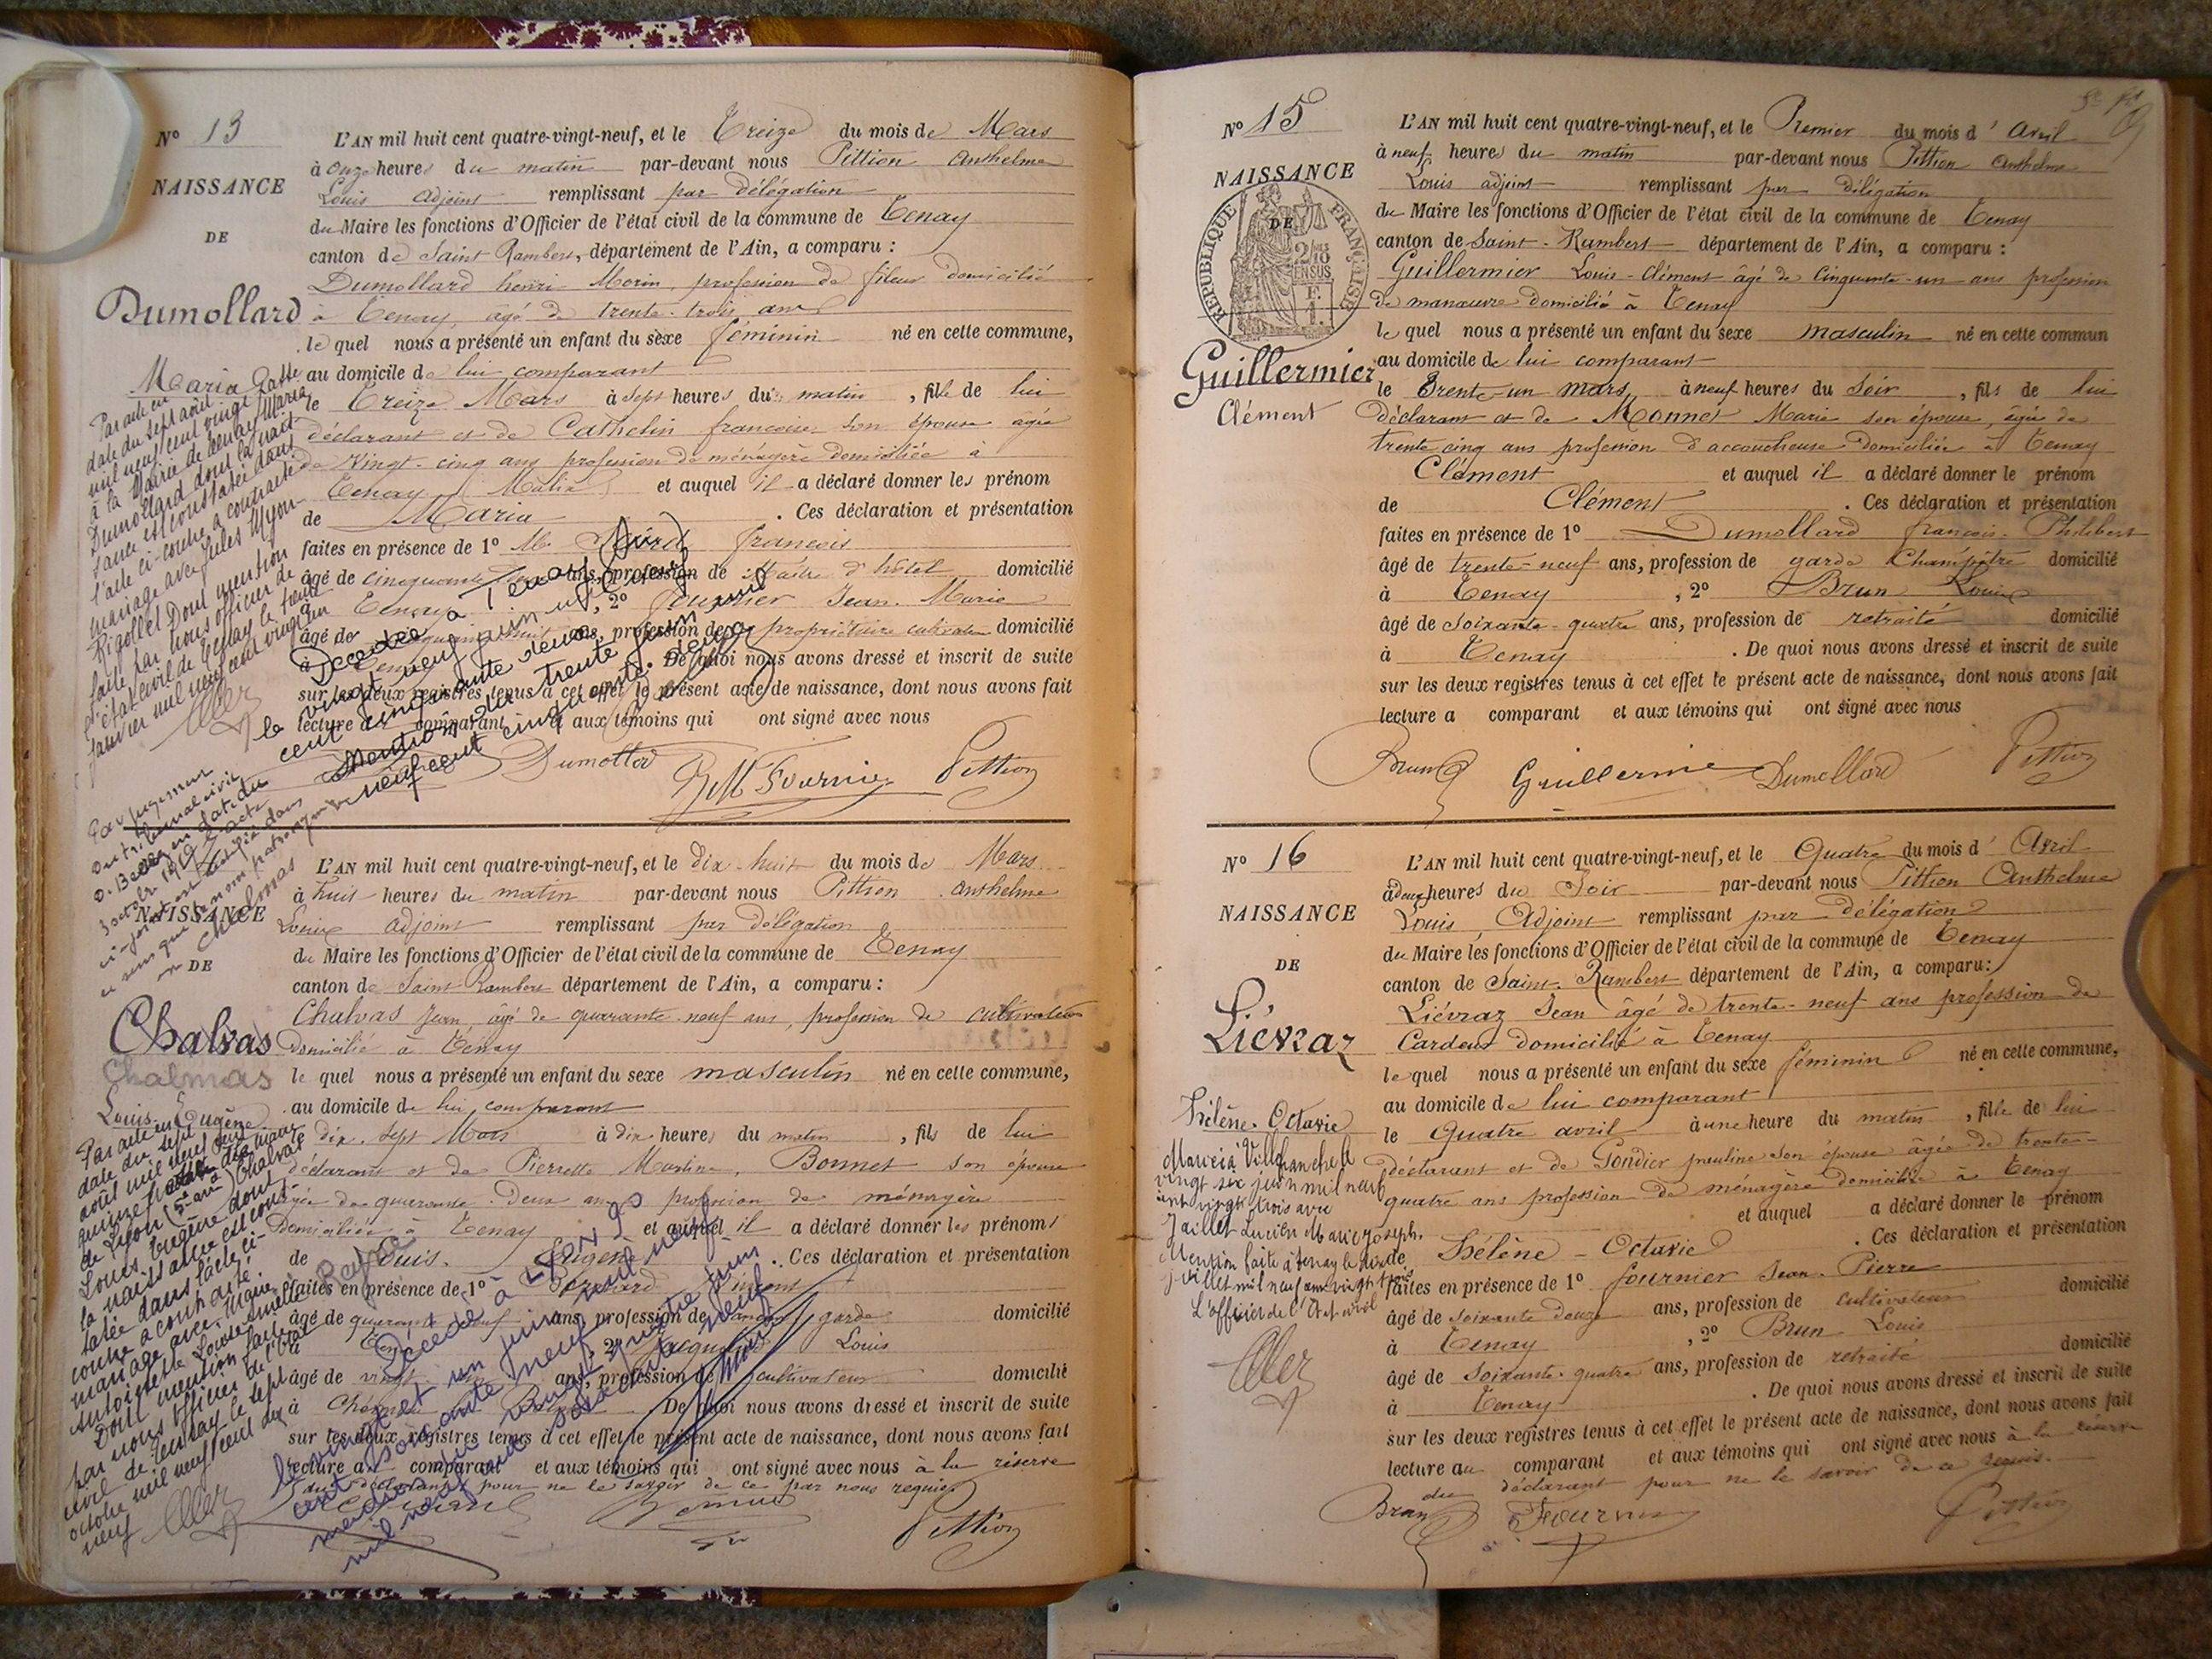 N° 13
NAISSANCE
DE
Dumollard
Maria
L'AN mil huit cent quatre-vingt-neuf, et le Treize du mois de Mars
à onze heures du matin par-devant nous Pittion Anthelme
Louis adjoint remplissant par délégation
du Maire les fonctions d'Officier de l'état civil de la commune de Tenay
canton de Saint Rambert, département de l'Ain, a comparu :
Dumollard henri Morin, profession de fileur domicilié
à Tenay, âgé de trente-trois ans
le quel nous a présenté un enfant du sexe féminin né en cette commune,
au domicile de lui comparant
le Treize Mars à sept heures du matin, fille de lui
déclarant et de Cathelin francoise son épouse agée
de Vingt-cinq ans profession de ménagère domiciliée à
Tenay (Maria) et auquel il a déclaré donner les prénom
de Maria . Ces déclaration et présentation
faites en présence de 1° M. francois
âgé de cinquante ans, profession de Maître d'hôtel domicilié
à Tenay, 2° fournier Jean-Marie
âgé de ans, profession de propriétaire cultivateur domicilié
à Tenay De quoi nous avons dressé et inscrit de suite
sur les deux registres tenus à cet effet le présent acte de naissance, dont nous avons fait
lecture au comparant et aux témoins qui ont signé avec nous
Dumollard
J M Fournier
Pittion
Par acte en
date du sept août
mil neuf cent vingt
à la Mairie de Tenay Maria
Dumollard dont la nais-
sance est constatée dans
l'acte ci-contre a contracté
mariage avec Jules
Rigollet Dont mention
faite par nous officier de
l'état civil de Tenay le
janvier mil neuf cent vingt un
Décédée à Tenay (Ain)
le vingt neuf juin mil neuf
cent cinquante deux.
Mention du trente juin mil
neuf cent cinquante deux
Par jugement
du tribunal civil
de Belley en date du
3 octobre 19 l'acte
ci-joint est rectifié dans
ce sens que le nom patronymique
Chalmas
NAISSANCE
DE
Chalvas
Chalmas
Louis-Eugène
L'AN mil huit cent quatre-vingt-neuf, et le dix-huit du mois de Mars
à huit heures du matin par-devant nous Pittion Anthelme
Louis adjoint remplissant par délégation
du Maire les fonctions d'Officier de l'état civil de la commune de Tenay
canton de Saint Rambert département de l'Ain, a comparu :
Chalvas Jean, âgé de quarante neuf ans, profession de cultivateur
Domicilié à Tenay
le quel nous a présenté un enfant du sexe masculin né en cette commune,
au domicile de lui comparant
le dix-sept Mars à dix heures du matin, fils de lui
déclarant et de Pierrette Martine, Bonnet son épouse
agée de quarante-Deux ans profession de ménagère
Domiciliée à Tenay et auquel il a déclaré donner les prénoms
de Louis. Eugène . Ces déclaration et présentation
faites en présence de 1° Vincent
âgé de quarante neuf ans, profession de garde domicilié
à Tenay, 2° Louis
âgé de vingt ans, profession de cultivateur domicilié
à De quoi nous avons dressé et inscrit de suite
sur les deux registres tenus à cet effet le présent acte de naissance, dont nous avons fait
lecture au comparant et aux témoins qui ont signé avec nous à la réserve
du déclarant pour ne le savoir de ce par nous requis.
Pittion
Par acte en
date du sept
août mil neuf cent
quinze
de Lyon (5e arr.) Chalvas
Louis. Eugène dont
la naissance est cons-
tatée dans l'acte ci-
contre a contracté
mariage avec Marie
Antoinette Louise
Dont mention faite
par nous officier de l'état
civil de Tenay le sept
octobre mil neuf cent dix
neuf
Décédé à Lyon
le vingt et un juin mil neuf
cent soixante neuf
mention du vingt quatre juin
mil neuf cent soixante neuf
N° 15
NAISSANCE
DE
REPUBLIQUE FRANÇAISE
2/10
EN SUS
Guillermier
Clément
L'AN mil huit cent quatre-vingt-neuf, et le Premier du mois d'Avril
à neuf heures du matin par-devant nous Pittion Anthelme
Louis adjoint remplissant par délégation
du Maire les fonctions d'Officier de l'état civil de la commune de Tenay
canton de Saint-Rambert département de l'Ain, a comparu :
Guillermier Louis-Clément âgé de Cinquante-un ans profession
de manœuvre domicilié à Tenay
le quel nous a présenté un enfant du sexe masculin né en cette commun
au domicile de lui comparant
le Trente-un Mars à neuf heures du Soir, fils de lui
déclarant et de Monnet Marie son épouse, agée de
trente cinq ans profession d'accoucheuse domiciliée à Tenay
Clément et auquel il a déclaré donner le prénom
de Clément . Ces déclaration et présentation
faites en présence de 1° Dumollard francois-Philibert
âgé de trente-neuf ans, profession de garde Champêtre domicilié
à Tenay, 2° Brun Louis
âgé de soixante-quatre ans, profession de retraité domicilié
à Tenay . De quoi nous avons dressé et inscrit de suite
sur les deux registres tenus à cet effet le présent acte de naissance, dont nous avons fait
lecture a comparant et aux témoins qui ont signé avec nous
Brun
Guillermier
Dumollard
Pittion
N° 16
NAISSANCE
DE
Liévraz
Hélène-Octavie
L'AN mil huit cent quatre-vingt-neuf, et le Quatre du mois d'Avril
à deux heures du Soir par-devant nous Pittion Anthelme
Louis Adjoint remplissant par délégation
du Maire les fonctions d'Officier de l'état civil de la commune de Tenay
canton de Saint-Rambert département de l'Ain, a comparu :
Liévraz Jean âgé de trente-neuf ans profession de
Cardeur domicilié à Tenay
le quel nous a présenté un enfant du sexe féminin né en cette commune,
au domicile de lui comparant
le Quatre avril à une heure du matin, fille de lui
déclarant et de Gondier pauline son épouse âgée de trente-
quatre ans profession de ménagère domiciliée à Tenay
et auquel a déclaré donner le prénom
Hélène-Octavie . Ces déclaration et présentation
faites en présence de 1° fournier Jean-Pierre
âgé de soixante douze ans, profession de cultivateur domicilié
à Tenay, 2° Brun Louis
âgé de soixante-quatre ans, profession de retraité domicilié
à Tenay . De quoi nous avons dressé et inscrit de suite
sur les deux registres tenus à cet effet le présent acte de naissance, dont nous avons fait
lecture au comparant et aux témoins qui ont signé avec nous à la réserve
du déclarant pour ne le savoir de ce requis.
Brun
Fournier
Pittion
Mariée à Villefranche le
vingt six juin mil neuf
cent vingt trois avec
Jaillet Lucien Marie Joseph.
Mention faite à Tenay le
juillet mil neuf cent vingt trois
L'officier de l'Etat civil